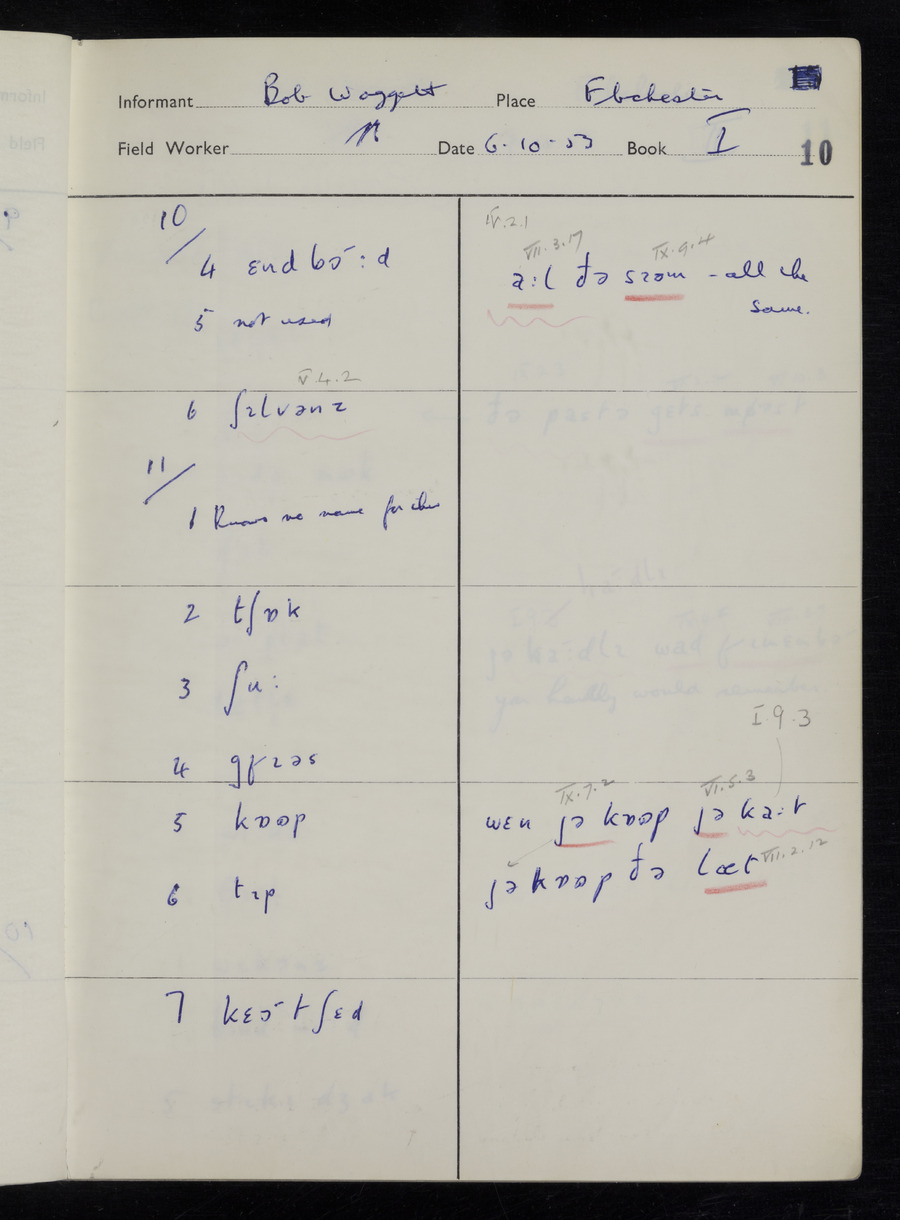 Informant Bob Waggott Place Ebchester
Field Worker Date 6.10.53 Book I 10
10/
4 ɛndbɔ̄:d
5 not used
6 ʃɛlvənz
V.4.2
11/
1 Knows no name for this
2 tʃɒk
3 ʃu:
4
5 kɒəp
6 tɪp
7 kɛɔ̄tʃɛd
IV.2.1
VII.3.17 IX.9.4
a:l ðə sɪəm - all the
same.
I.9.3
IX.7.2 VI.5.3
wɛn jə kɒəp jə ka:t
jə kɒəp ðə læt VIII.2.12